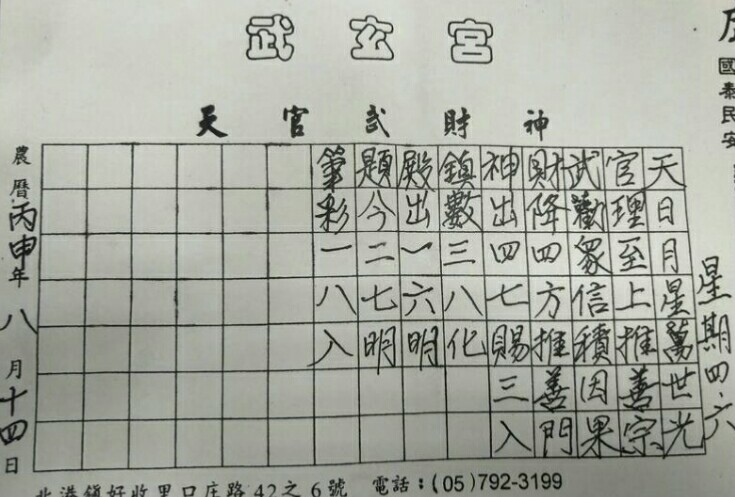 武玄宮
天官武財神
國泰民安
星期四、六
天日月星萬世光
官理至上推善宗
武勸衆信積因果
財降四方推善門
神出四七賜三入
鎮數三八化
殿出一六明
題今二七明
筆彩一八入
農曆丙申年八月十四日
北港鎮好收里口庄路42之6號 電話：(05)792-3199